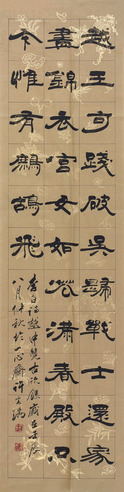 越王勾踐破吳歸戰士還家
盡錦衣宮女如花滿春殿只
今惟有鷓鴣飛
李白詩越中覽古歲在
八月仲秋於心齋許